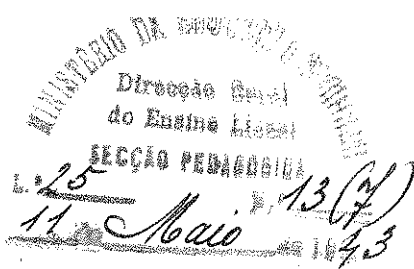 MINISTÉRIO DA
Direcção Geral
do Ensino Liceal
SECÇÃO PEDAGOGICA
L.º 25 13 (7)
11 Maio 43